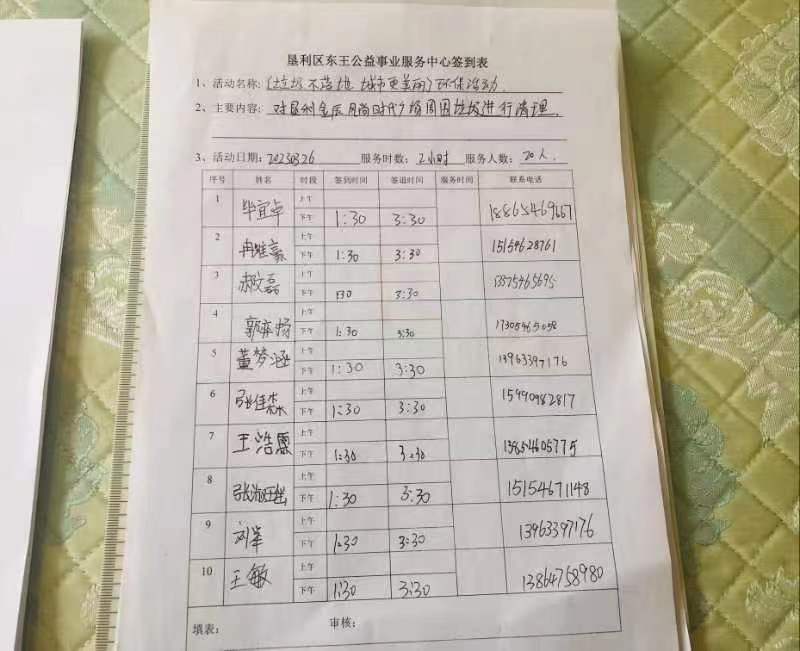 垦利区东王公益事业服务中心签到表
1、活动名称:《垃圾不落地 城市更美丽》环保活动.
2、主要内容: 对垦利金辰时尚时代广场周围垃圾进行清理.
3、活动日期: 20230326 服务时数: 2小时 服务人数: 20人.
序号 姓名 时段 签到时间 签退时间 服务时间 联系电话
1 毕宜卓 上午
下午 1:30 3:30 18865469667
2 冉继豪 上午
下午 1:30 3:30 15154628761
3 郝文磊 上午
下午 130 3:30
4 郭亦杨 上午
下午 1:30 3:30 17305465058
5 董梦涵 上午
下午 1:30 3:30 13963397176
6 张佳森 上午
下午 1:30 3:30 15990982817
7 王浩恩 上午
下午 1:30 3:30 13854605775
8 上午
下午 1:30 3:30 15154671148
9 刘军 上午
下午 1:30 3:30 13963397176
10 王敏 上午
下午 1:30 3:30 13864758980
填表: 审核: